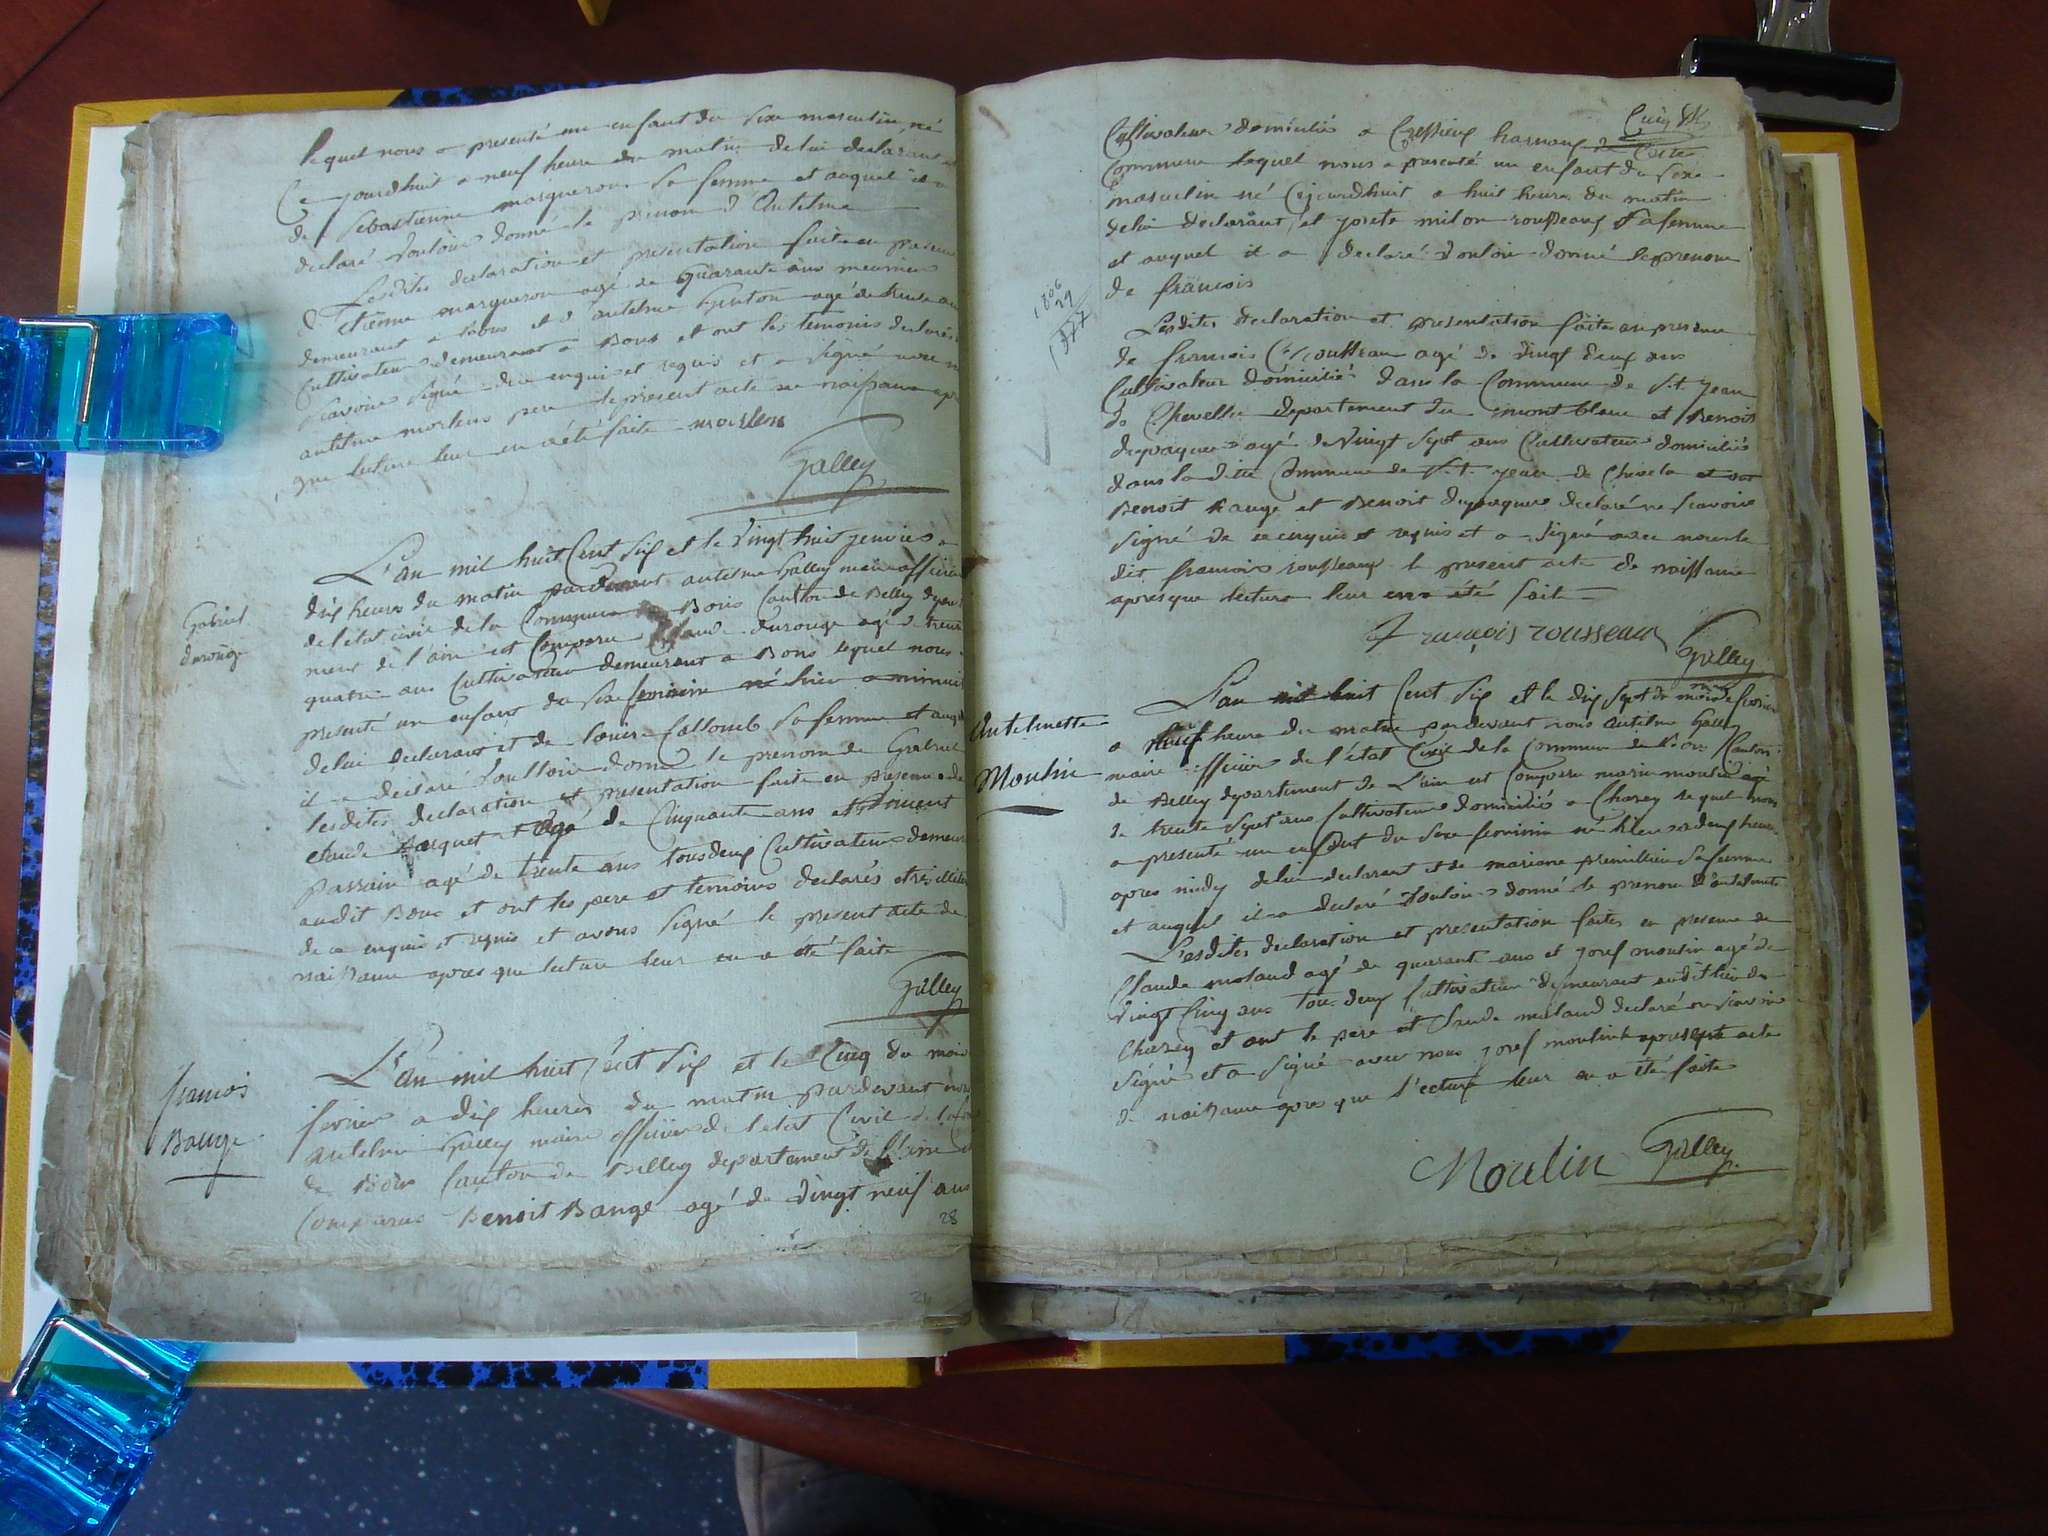 lequel nous a presenté un enfant du sexe masculin, né
Ce jourdhuit a neuf heure du matin de lui declarant et
de Sebastienne marguerou sa femme et auquel il a
declaré vouloir donné le prenom d'Antelme
Lesdites declaration et presentation faite en presence
d'Etienne marguerou agé de quarante ans meunier
demeurant a Bons et d'antelme agé de trente ans
Cultivateur demeurant a Bons et ont les temoins declarés
scavoir signé de enquis et requis et a signé avec nous
antelme pere le present acte de naissance après
que lecture leur en a été faite
Galley
Gabriel
durouge
L'an mil huit Cent Six et le vingt huit jenvier a
dix heures du matin pardevant antelme Galley maire officier
de l'etat civil de la Commune de Bons Canton de Belley depart
ment de l'ain est Comparu Claude durouge agé de trente
quatre ans Cultivateur demeurant a Bons lequel nous a
presenté un enfant du sexe feminin né hier a minuit
de lui declarant et de sa femme et auquel
il a declaré voulloir donné le prenom de Gabriel
lesdites declaration et presentation fait en presence de
Claude agé de Cinquante ans et
passain agé de trente ans tousdeux Cultivateur demeur
audit Bons et ont les pere et temoins declarés etre illiter
de ce enquis et requis et avons signé le present acte de
naissance apres que lecture leur en a été faite
Galley
francois
Bauge
L'An mil huit Cent Six et le Cinq du mois
fevrier a dix heures du matin pardevant nous
antelme Galley maire officier de l'etat Civil de la Co
de Bons Canton de Belley departement de l'ain est
Comparus Benoit Bange agé de vingt neuf ans
28
Cultivateur domiciliés a Cressieux
Commune lequel nous a presenté un enfant du sexe
masculin né Cejourdhuit a huit heure du matin
de lui declarant et milon rousseaux sa femme
et auquel il a declaré vouloir donné le prenom
de francois
1806
29
1777
Lesdites declaration et presentation faites en presence
de francois rousseau agé de vingt deux ans
Cultivateur domicilié dans la Commune de St. Jean
de Chevellu departement du mont blanc et Benoit
agé de Vingt sept ans Cultivateur domiciliés
dans la ditte Commune de St. jean de et ont
Benoit Bauge et Benoit declaré ne scavoir
signé de ce enquis et requis et a signé avec nous le
dit francois rousseaux le present acte de naissance
apres que lecture leur en a été faite
François rousseau
Galley
Antelmette
Moulin
L'an mil huit Cent Six et le dix sept du mois de fevrier
a heure du matin pardevant nous Antelme Galley
maire officier de l'état Civil de la Commune de Bons Canton
de Belley departement de L'ain est Comparu moulin agé
de trente sept ans Cultivateur domicilié a Charey lequel nous
a presenté un enfant du sexe feminin né hier a deux heures
apres midy de lui declarant et de mariane premillieu sa femme
et auquel il a declaré vouloir donné le prenom d'antelmette
Lesdites declaration et presentation faites en presence de
Claude molaud agé de quarant ans et josef moulin agé de
vingt Cinq ans tous deux Cultivateur demeurant audit lieu de
Charey et ont le pere et Claude molaud declaré ne scavoir
signé et a signé avec nous josef moulin acte
de naissance apres que lecture leur en a été faite
Moulin Galley